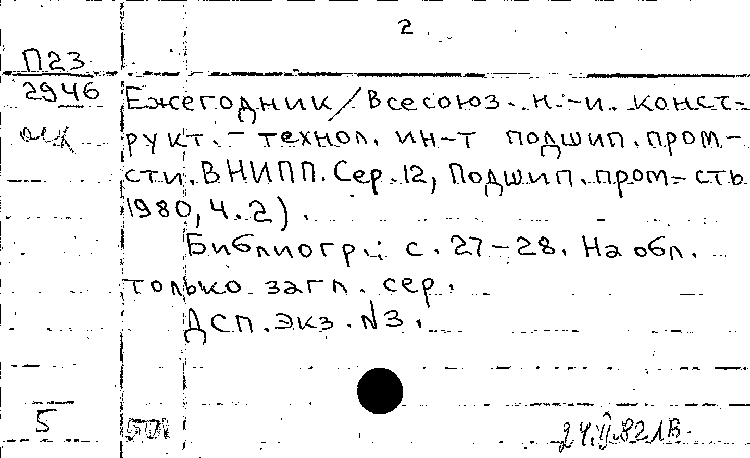 2
П23
2946
Ежегодник/Всесоюз. н.-и. конст-
рукт.-технол. ин-т подшип. пром-
сти. ВНИПП. Сер. 12, Подшип. пром-сть
1980, Ч. 2).
Библиогр.: с. 27-28. На обл.
только загл. сер.
ДСП. Экз. N3.
5
501